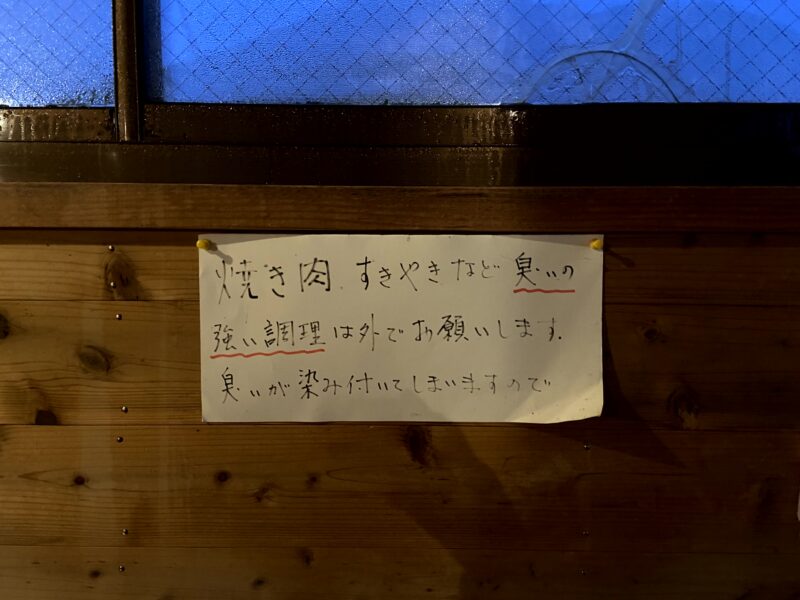 焼き肉.すきやきなど臭いの
強い調理は外でお願いします.
臭いが染み付いてしまいますので